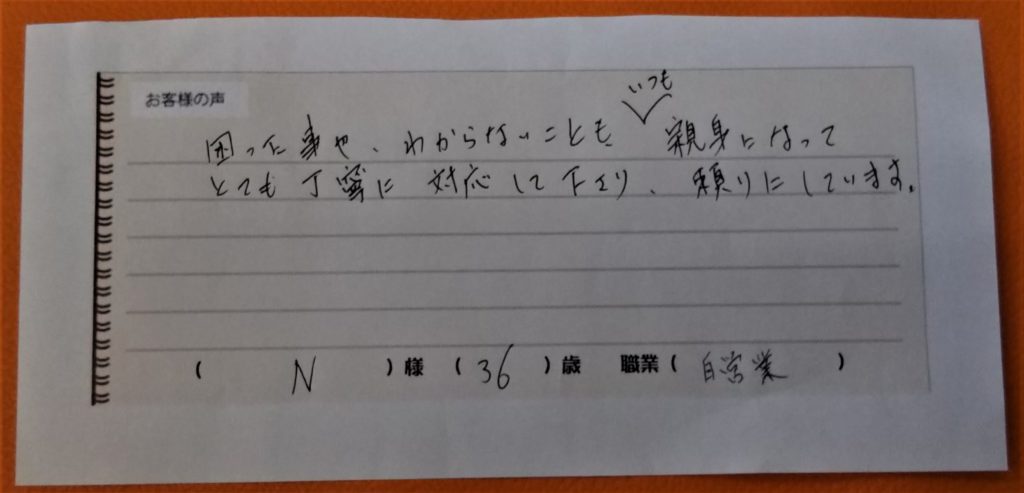 お客様の声
いつも
困った事や、わからないことも、親身になって
とても丁寧に対応して下さり、頼りにしています。
( N )様 ( 36 )歳 職業 ( 自営業 )